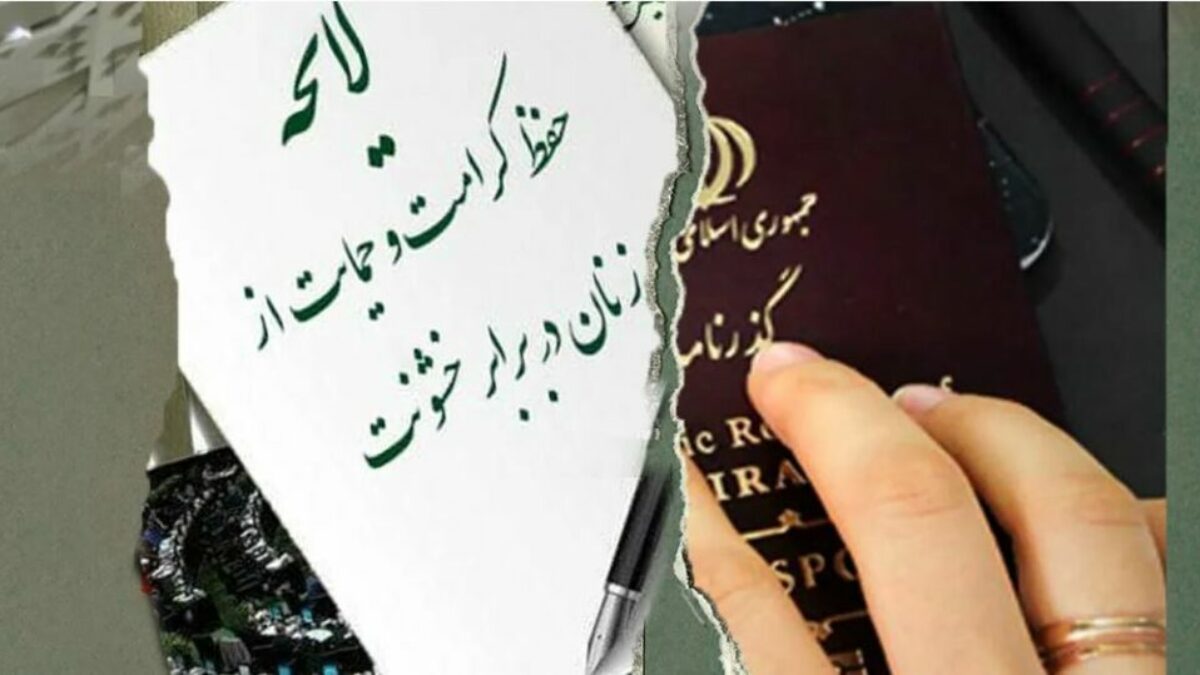 لایحه
حفظ کرامت و حمایت از
زنان در برابر خشونت
جمهوری اسلامی
گذرنامه
ic Re
IRA
SPO